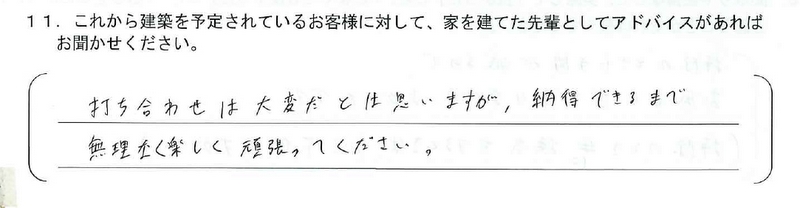 １１．これから建築を予定されているお客様に対して、家を建てた先輩としてアドバイスがあれば
お聞かせください。
打ち合わせは大変だとは思いますが，納得できるまで
無理なく楽しく頑張ってください。